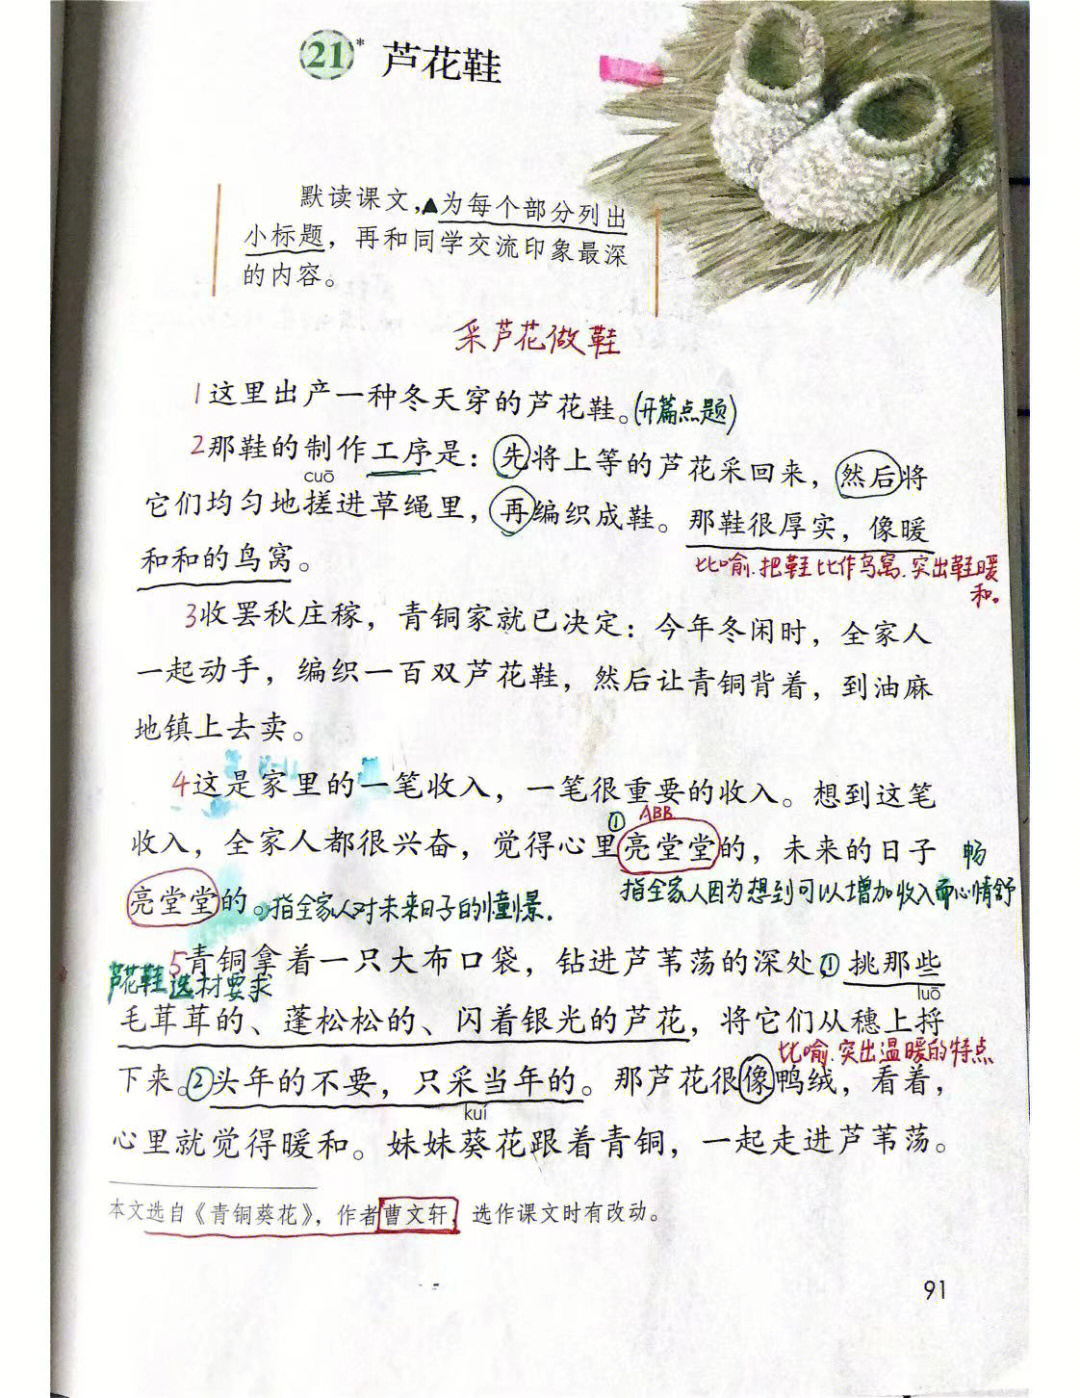 21* 芦花鞋
默读课文,▲为每个部分列出
小标题，再和同学交流印象最深
的内容。
采芦花做鞋
1这里出产一种冬天穿的芦花鞋。(开篇点题)
2那鞋的制作工序是：先将上等的芦花采回来，然后将
cuō
它们均匀地搓进草绳里，再编织成鞋。那鞋很厚实，像暖
和和的鸟窝。
比喻.把鞋比作鸟窝.突出鞋暖
和。
3收罢秋庄稼，青铜家就已决定：今年冬闲时，全家人
一起动手，编织一百双芦花鞋，然后让青铜背着，到油麻
地镇上去卖。
4这是家里的一笔收入，一笔很重要的收入。想到这笔
① ABB
收入，全家人都很兴奋，觉得心里亮堂堂的，未来的日子 畅
指全家人因为想到可以增加收入而心情舒
亮堂堂的。②指全家人对未来日子的憧憬.
5青铜拿着一只大布口袋，钻进芦苇荡的深处①挑那些
芦花鞋选材要求
luō
毛茸茸的、蓬松松的、闪着银光的芦花，将它们从穗上捋
比喻.突出温暖的特点
下来。②头年的不要，只采当年的。那芦花很像鸭绒，看着，
kuí
心里就觉得暖和。妹妹葵花跟着青铜，一起走进芦苇荡。
本文选自《青铜葵花》，作者曹文轩，选作课文时有改动。
91